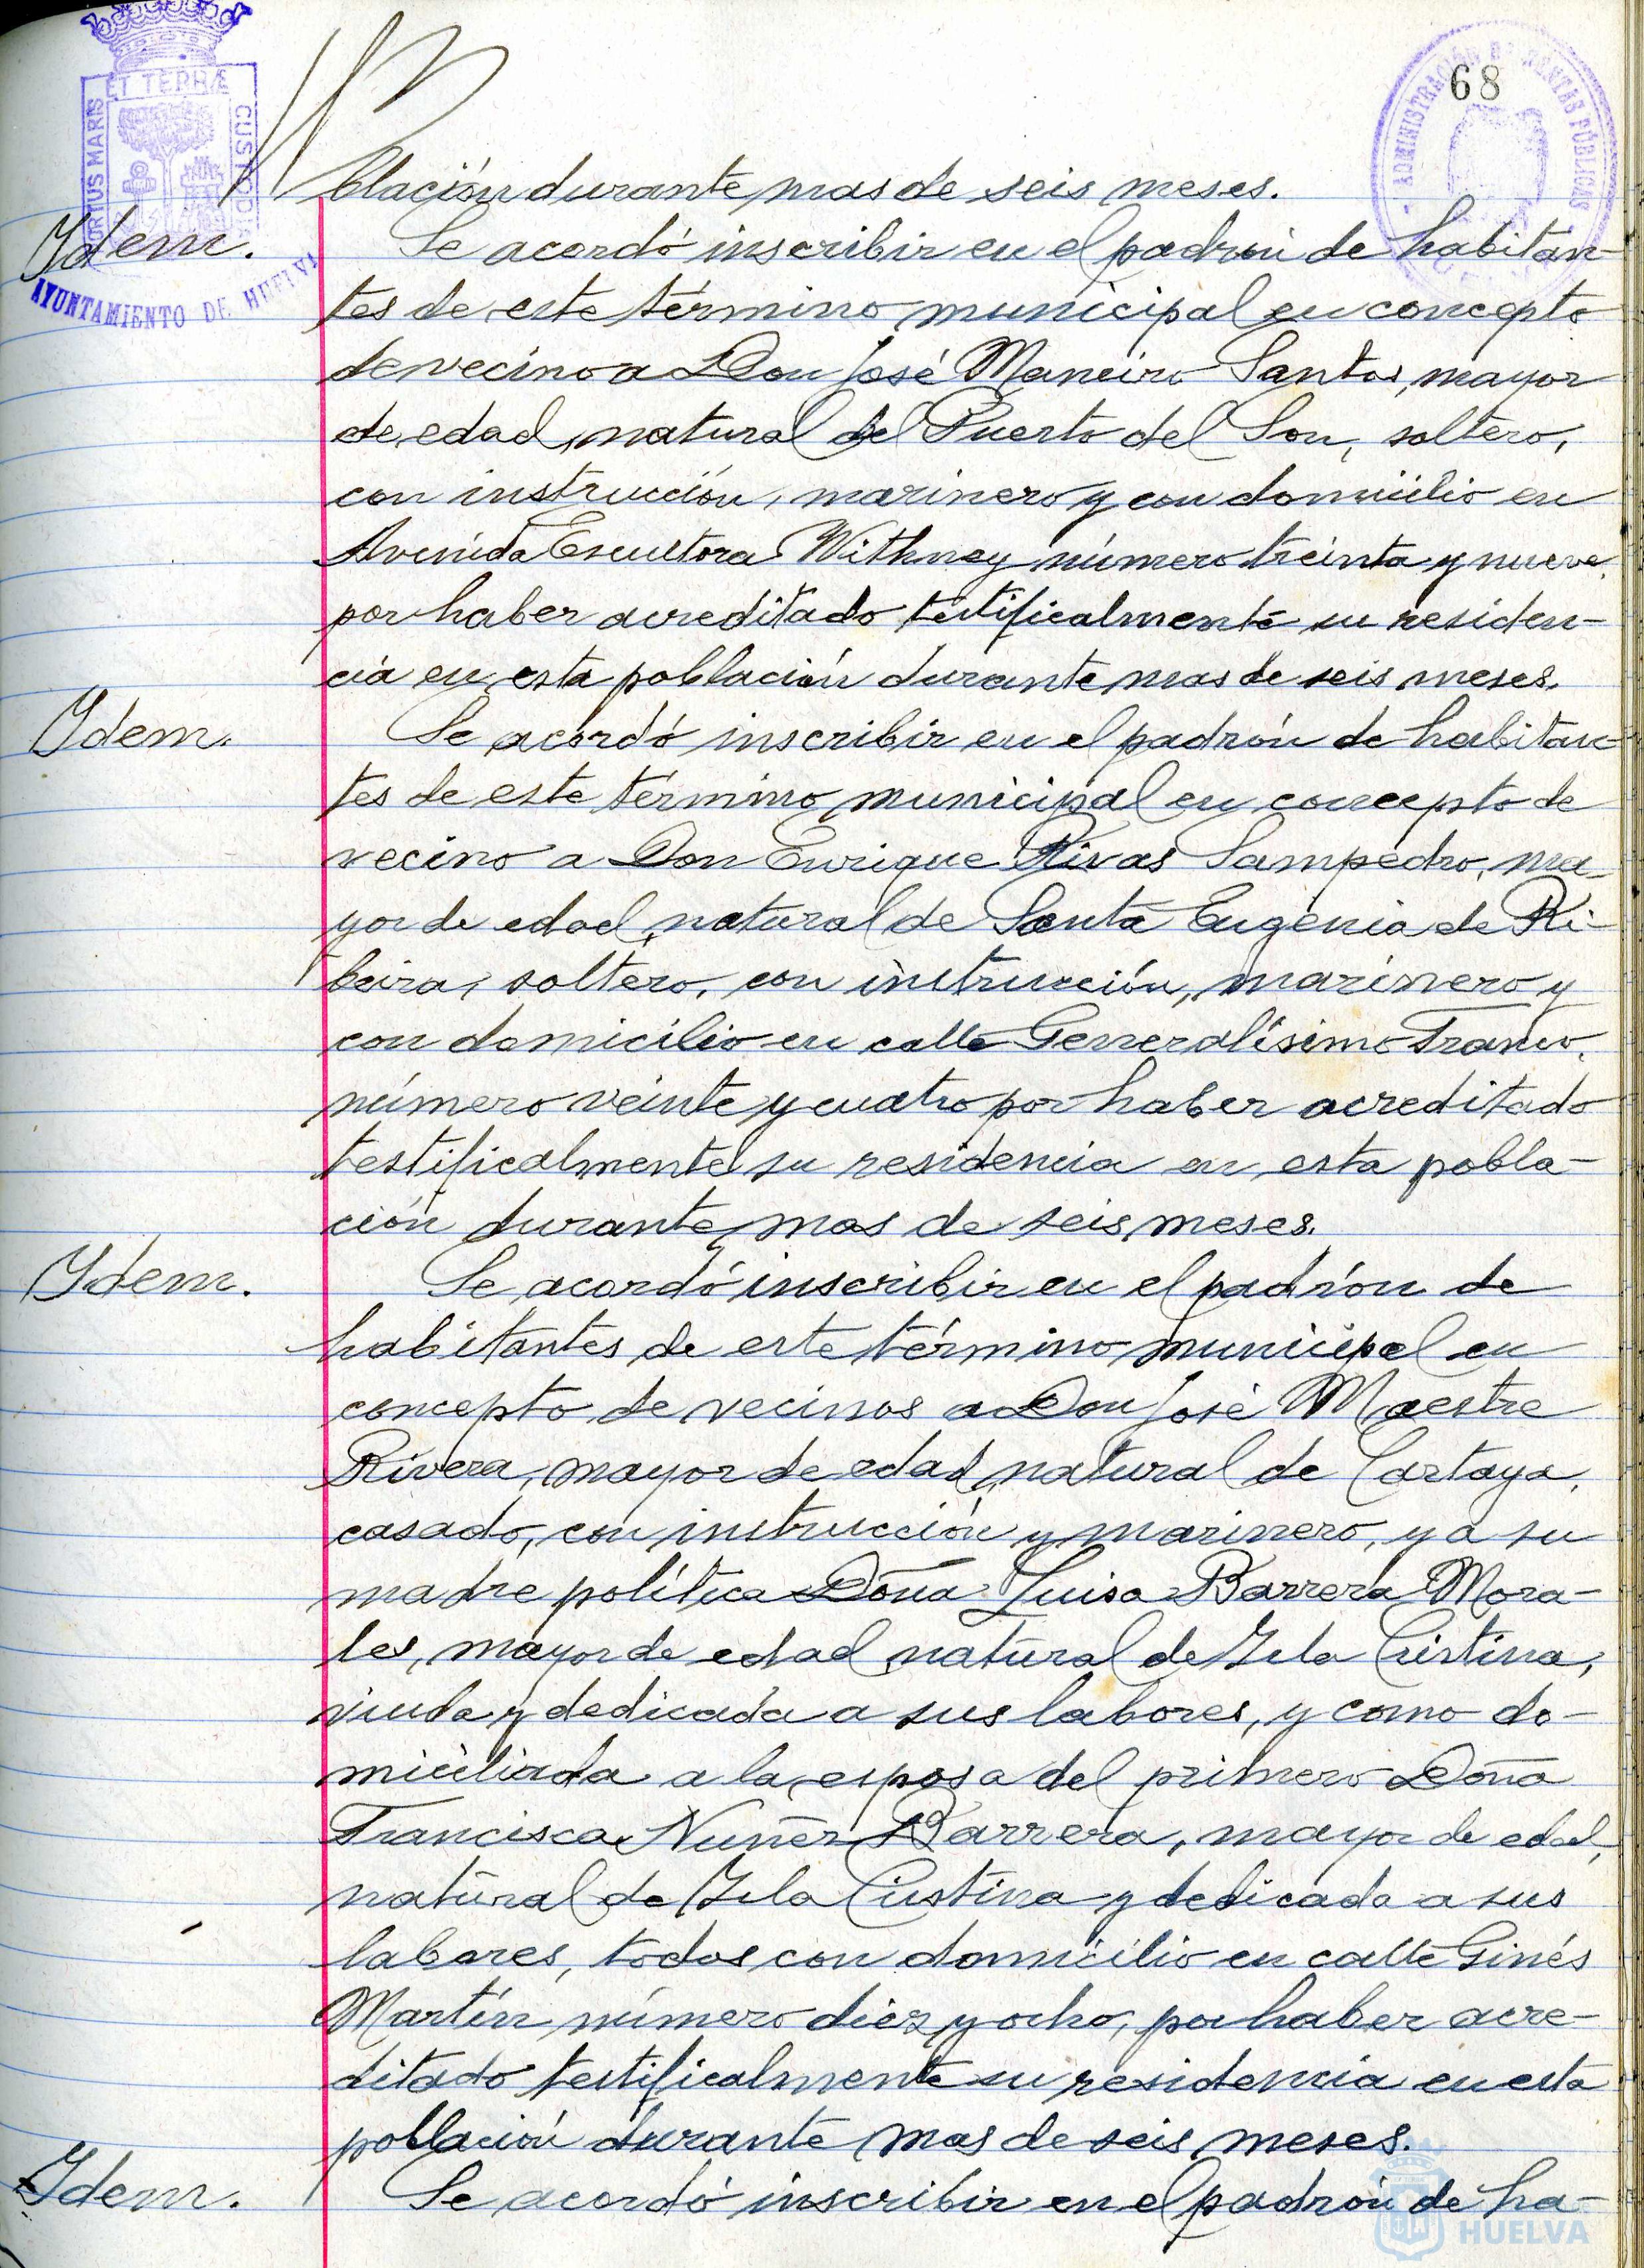 68
PORTUS MARIS ET TERRÆ CUSTODIA
AYUNTAMIENTO DE HUELVA
ADMINISTRACIÓN DE RENTAS PÚBLICAS
blación durante mas de seis meses.
Idem. Se acordó inscribir en el padrón de habitan-
tes de este término municipal en concepto
de vecino a Don José Maneiro Santos, mayor
de edad, natural del Puerto del Son, soltero,
con instrucción, marinero y con domicilio en
Avenida Escultora Withney número treinta y nueve,
por haber acreditado testificalmente su residen-
cia en esta población durante mas de seis meses.
Idem. Se acordó inscribir en el padrón de habitan-
tes de este término municipal en concepto de
vecino a Don Enrique Rivas Sampedro, ma-
yor de edad, natural de Santa Eugenia de Ri-
beira, soltero, con instrucción, marinero y
con domicilio en calle Generalísimo Franco,
número veinte y cuatro por haber acreditado
testificalmente su residencia en esta pobla-
ción durante mas de seis meses.
Idem. Se acordó inscribir en el padrón de
habitantes de este término municipal en
concepto de vecinos a Don José Maestre
Rivera, mayor de edad, natural de Cartaya,
casado, con instrucción y marinero, y a su
madre política Doña Luisa Barrera Mora-
les, mayor de edad, natural de Ysla Cristina,
viuda y dedicada a sus labores, y como do-
miciliada a la esposa del primero Doña
Francisca Nuñez Barrera, mayor de edad,
natural de Ysla Cristina y dedicada a sus
labores, todos con domicilio en calle Ginés
Martín número diez y ocho, por haber acre-
ditado testificalmente su residencia en esta
población durante mas de seis meses.
Idem. Se acordó inscribir en el padrón de ha-
HUELVA